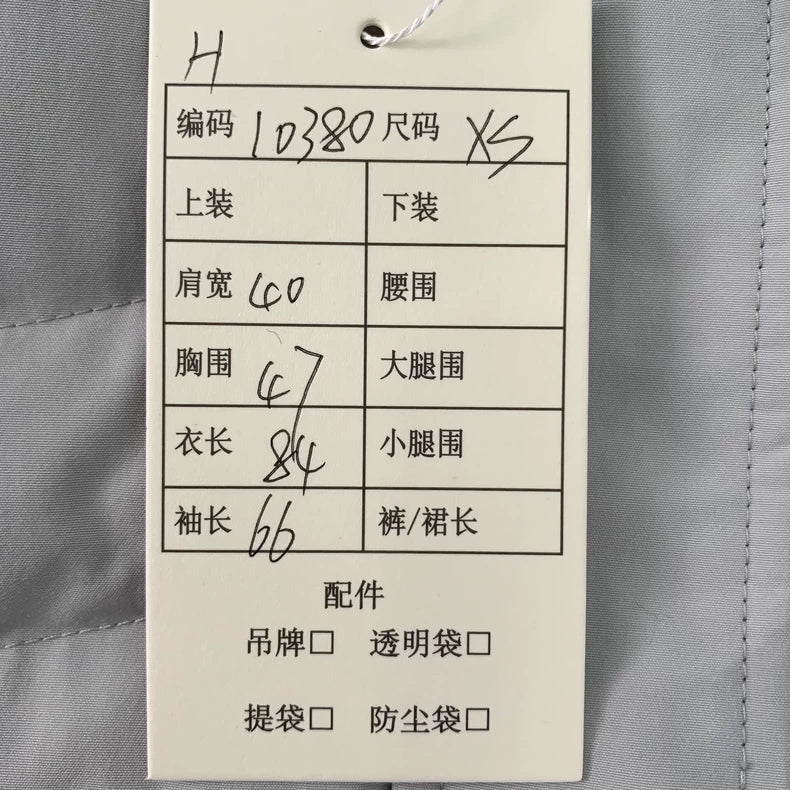 H
编码 10380 尺码 XS
上装 下装
肩宽 40 腰围
胸围 47 大腿围
衣长 84 小腿围
袖长 66 裤/裙长
配件
吊牌□ 透明袋□
提袋□ 防尘袋□